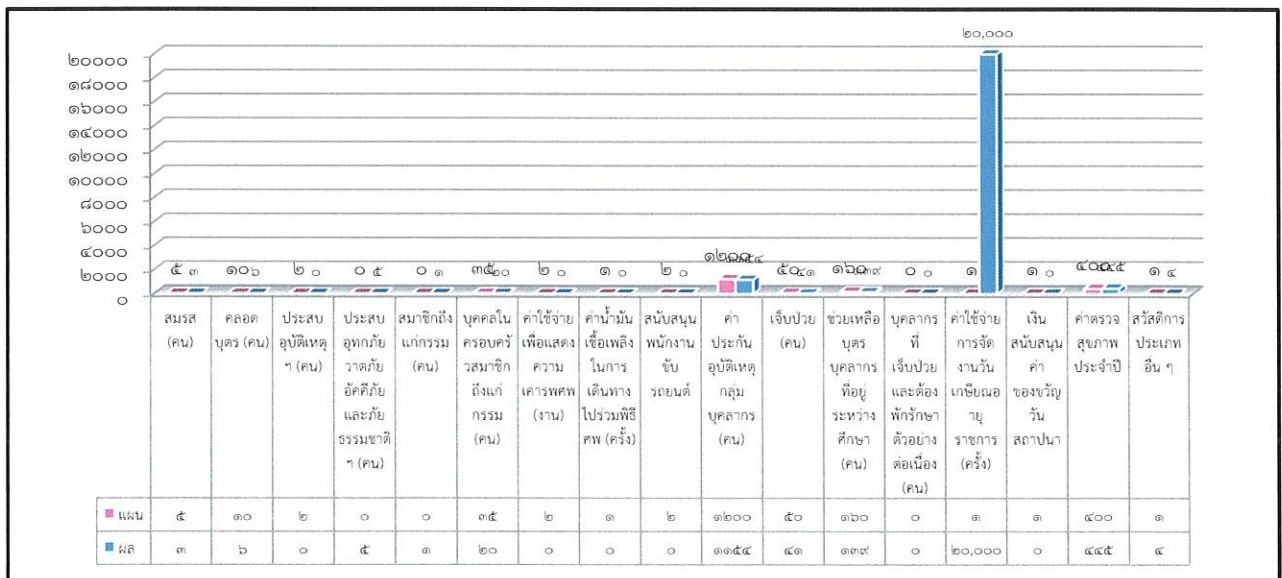 ๒๐,๐๐๐
๒๐๐๐๐
๑๘๐๐๐
๑๖๐๐๐
๑๔๐๐๐
๑๒๐๐๐
๑๐๐๐๐
๘๐๐๐
๖๐๐๐
๔๐๐๐
๒๐๐๐
๐
๕ ๓ ๑๐ ๖ ๒ ๐ ๐ ๕ ๐ ๑ ๓๕ ๒๐ ๒ ๐ ๑ ๐ ๒ ๐ ๑๒๐๐ ๑๑๕๔ ๕๐ ๔๑ ๑๖๐ ๑๓๙ ๐ ๐ ๑ ๑ ๐ ๔๐๐ ๔๔๕ ๑ ๔
สมรส
(คน)
คลอด
บุตร (คน)
ประสบ
อุบัติเหตุ
ฯ (คน)
ประสบ
อุทกภัย
วาตภัย
อัคคีภัย
และภัย
ธรรมชาติ
ฯ (คน)
สมาชิกถึง
แก่กรรม
(คน)
บุคคลใน
ครอบครั
วสมาชิก
ถึงแก่
กรรม
(คน)
ค่าใช้จ่าย
เพื่อแสดง
ความ
เคารพศพ
(งาน)
ค่าน้ำมัน
เชื้อเพลิง
ในการ
เดินทาง
ไปร่วมพิธี
ศพ (ครั้ง)
สนับสนุน
พนักงาน
ขับ
รถยนต์
ค่า
ประกัน
อุบัติเหตุ
กลุ่ม
บุคลากร
(คน)
เจ็บป่วย
(คน)
ช่วยเหลือ
บุตร
บุคลากร
ที่อยู่
ระหว่าง
ศึกษา
(คน)
บุคลากร
ที่
เจ็บป่วย
และต้อง
พักรักษา
ตัวอย่าง
ต่อเนื่อง
(คน)
ค่าใช้จ่าย
การจัด
งานวัน
เกษียณอ
ายุ
ราชการ
(ครั้ง)
เงิน
สนับสนุน
ค่า
ของขวัญ
วัน
สถาปนา
ค่าตรวจ
สุขภาพ
ประจำปี
สวัสดิการ
ประเภท
อื่น ๆ
แผน ๕ ๑๐ ๒ ๐ ๐ ๓๕ ๒ ๑ ๒ ๑๒๐๐ ๕๐ ๑๖๐ ๐ ๑ ๑ ๔๐๐ ๑
ผล ๓ ๖ ๐ ๕ ๑ ๒๐ ๐ ๐ ๐ ๑๑๕๔ ๔๑ ๑๓๙ ๐ ๒๐,๐๐๐ ๐ ๔๔๕ ๔